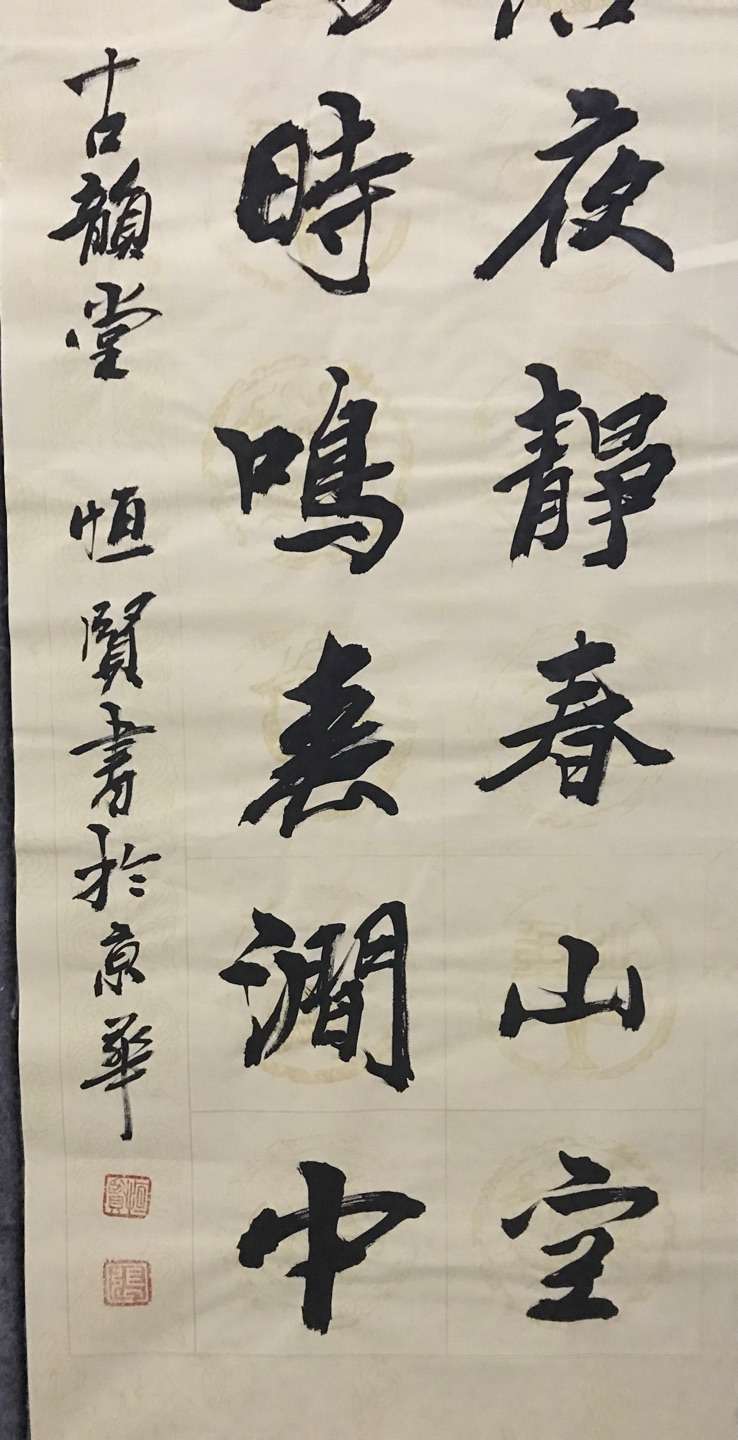 夜靜春山空
時鳴春澗中
古韻堂 恒賢書於京華
恒賢